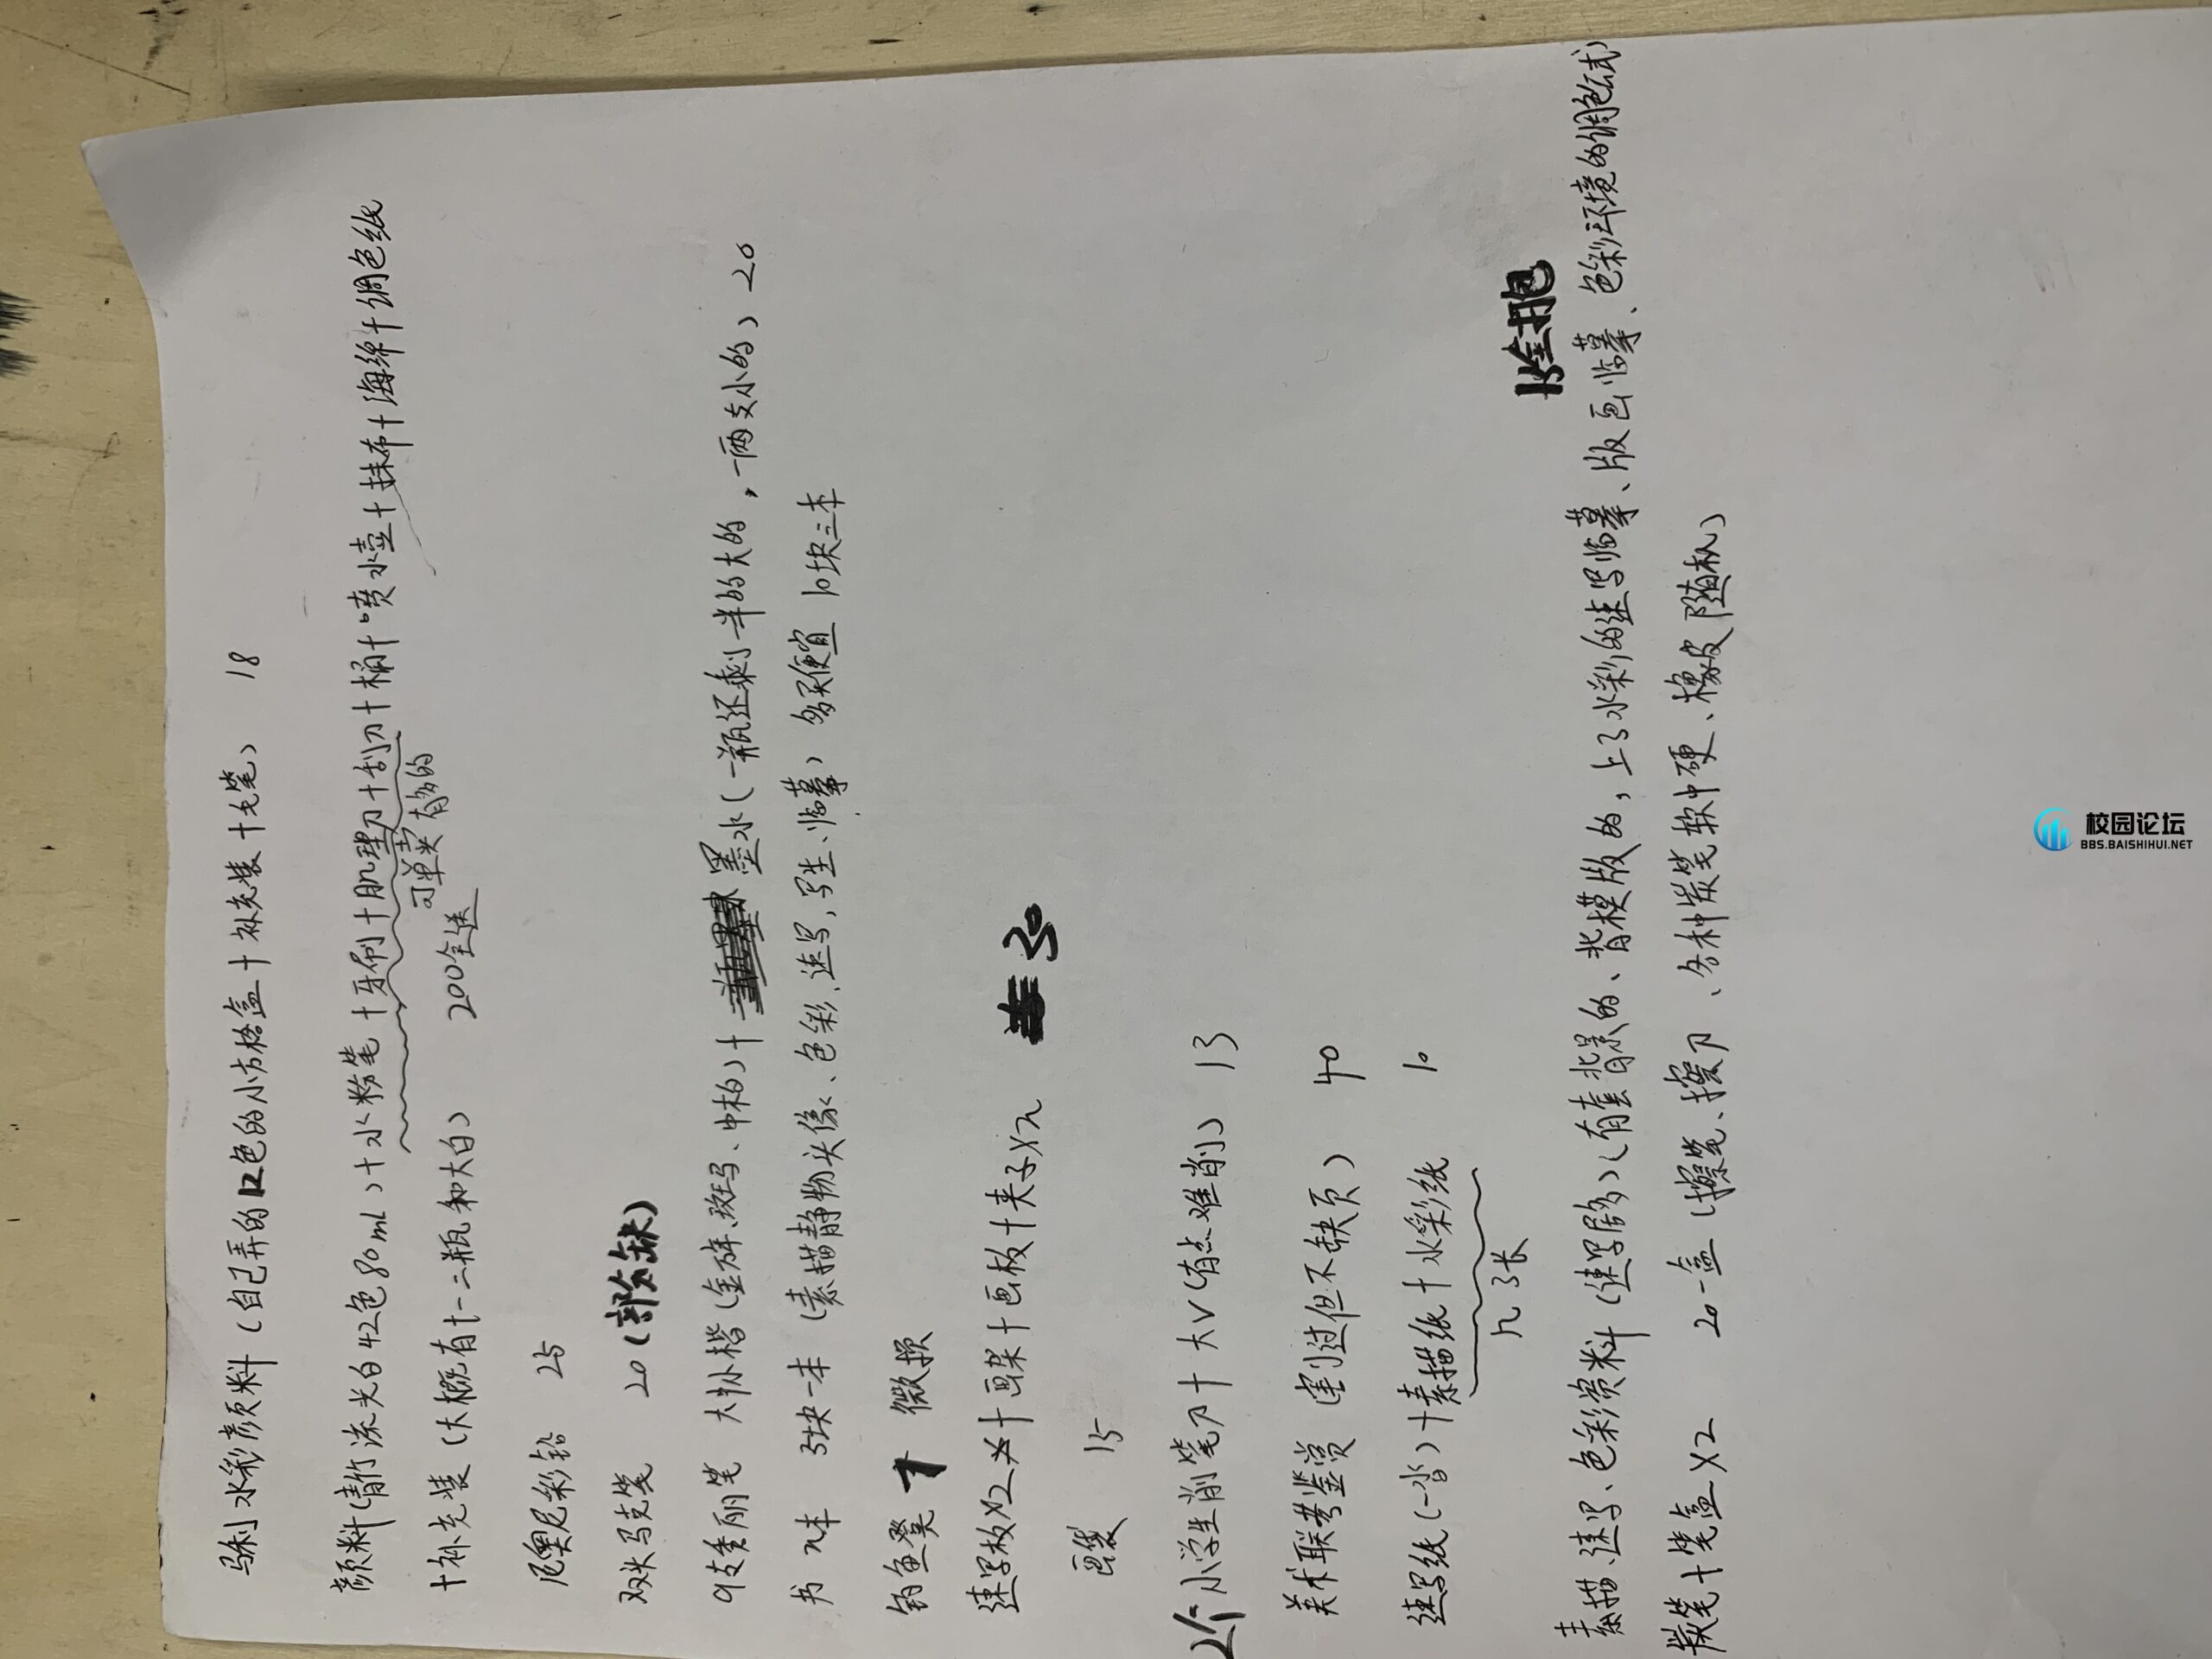 马利水彩颜料（自己弄的12色的小方格盒＋补充装＋毛笔） 18
颜料（青竹流光白42色80ml）＋水粉笔＋牙刷＋肌理刀＋刮刀＋桶＋喷水壶＋抹布＋海绵＋调色纸
可单卖 有多的
＋补充装（大概有十一二瓶和大白） 200全送
尼奥尼彩铅 25
双头马克笔 20（部分缺）
9支秀丽笔 大中小楷（金辉、斑马、中柏）＋墨水（一瓶还剩一半的大的，一两支小的） 20
书 n本 5块一本（素描静物头像、色彩、速写，写生、临摹） 多买便宜 10块三本
钓鱼凳 1 微损
速写板X2＋画架＋画板＋夹子X2 30
画袋 15
2个小学生削笔刀＋大V（有点难削） 13
美术联考鉴赏（写过但不缺页） 40
速写纸（一沓）＋素描纸＋水彩纸 10
几张
15全抱
素描、速写、色彩资料（速写居多）（有套背景的、背模版的，上了水彩的速写临摹、版画临摹、色彩环境的调色公式）
炭笔＋笔盒X2 20一盒（擦笔、擦刀、各种炭笔软中硬、橡皮随机）
校园论坛
BBS.BAISHIHUI.NET